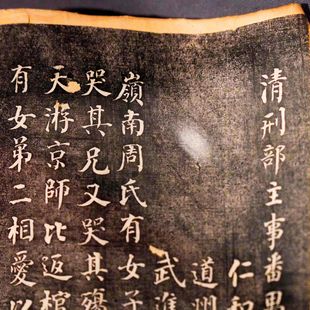 清刑部主事番禺
仁和
道州
武進
嶺南周氏有女子
哭其兄又哭其殤
天游京師比返棺
有女弟二相愛以